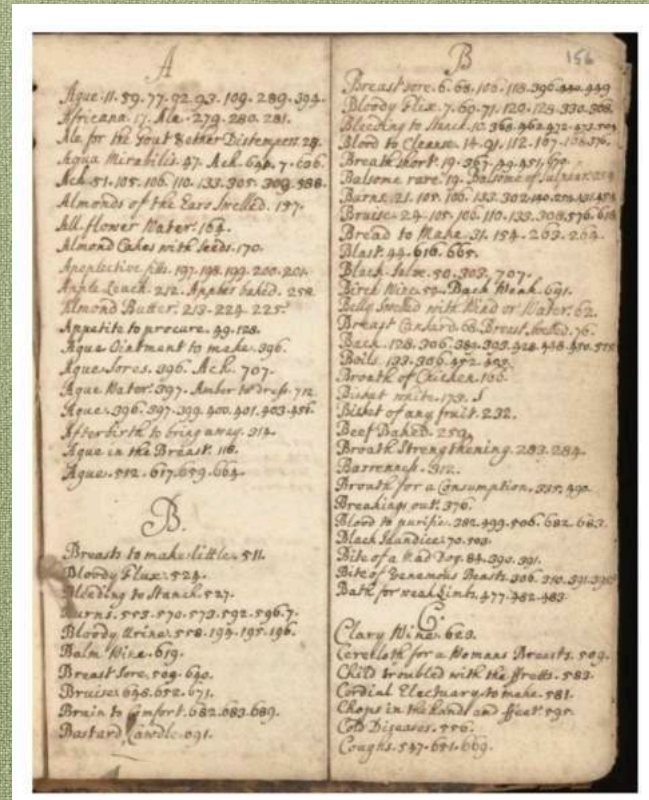 A
Ague. 11. 59. 77. 92. 93. 109. 289. 394.
Africana. 17. Ale. 279. 280. 281.
Ale for the Gout & other Distempers. 28.
Aqua Mirabilis. 47. Ach. 644. 7. 606.
Ach. 51. 105. 106. 110. 133. 305. 309. 588.
Almonds of the Ears Swelled. 137.
All-flower Water. 164.
Almond Cakes with seeds. 170.
pills. 197. 198. 199. 200. 201.
Apple 212. Apples baked. 258.
Almond Butter. 213. 224. 225.
Appetite to procure. 49. 128.
Ague Ointment to make. 396.
Ague Sores. 396. Ach. 707.
Ague Water. 397. Amber to dress. 712.
Ague. 396. 397. 399. 400. 401. 403. 456.
Afterbirth to bring away. 314.
Ague in the Breast. 118.
Ague. 512. 617. 659. 664.
B.
Breasts to make little. 511.
Bloody Flux. 524.
Bleeding to Stanch. 527.
Burns. 553. 570. 573. 592. 596. 7.
Bloody Urine. 558. 194. 195. 196.
Balm Wine. 619.
Breast Sore. 509. 640.
Bruise. 648. 652. 671.
Brain to Comfort. 682. 683. 689.
Bastard 691.
B
156
Breast sore. 6. 68. 106. 118. 396. 449
Bloody Flix. 7. 69. 71. 120. 128. 330. 368.
Bleeding to Stanch. 10. 368. 462. 472. 473.
Blood to Cleanse. 14. 91. 112. 167. 376.
Breath short. 19. 367. 49. 451.
Balsome rare. 19. Balsome of Sulphur.
Burns. 21. 105. 106. 133. 302.
Bruise. 24. 105. 106. 110. 133. 308. 576. 618
Bread to Make. 31. 154. 263. 264.
Blast. 44. 616. 665.
Black Salve. 50. 303. 707.
Birch Wine. 52. Back Weak. 691.
Belly Swelled with Wind or Water. 62.
Breast Cankard. 68. Breast swelled. 76.
Back. 128. 306.
Boils. 133. 306. 452.
Broath of Chicken. 166.
Bisket white. 173.
Bisket of any fruit. 232.
Beef Baked. 259.
Broath Strengthening. 283. 284.
Barrenness. 312.
Broath for a Consumption. 335. 490.
Breakings out. 376.
Blood to purifie. 382. 499. 506. 682. 683.
Black Jaundice. 70. 503.
Bite of a Mad Dog. 84. 390. 391.
Bite of Venemous Beasts. 306. 310. 391.
Bath for weak Limbs. 477. 482. 483.
C.
Clary Wine. 623.
Cerecloth for a Womans Breasts. 509.
Child troubled with the ffretts. 583.
Cordial Electuary to make. 581.
Chops in the hands and ffeet. 595.
Cold Diseases. 556.
Coughs. 547. 651. 669.